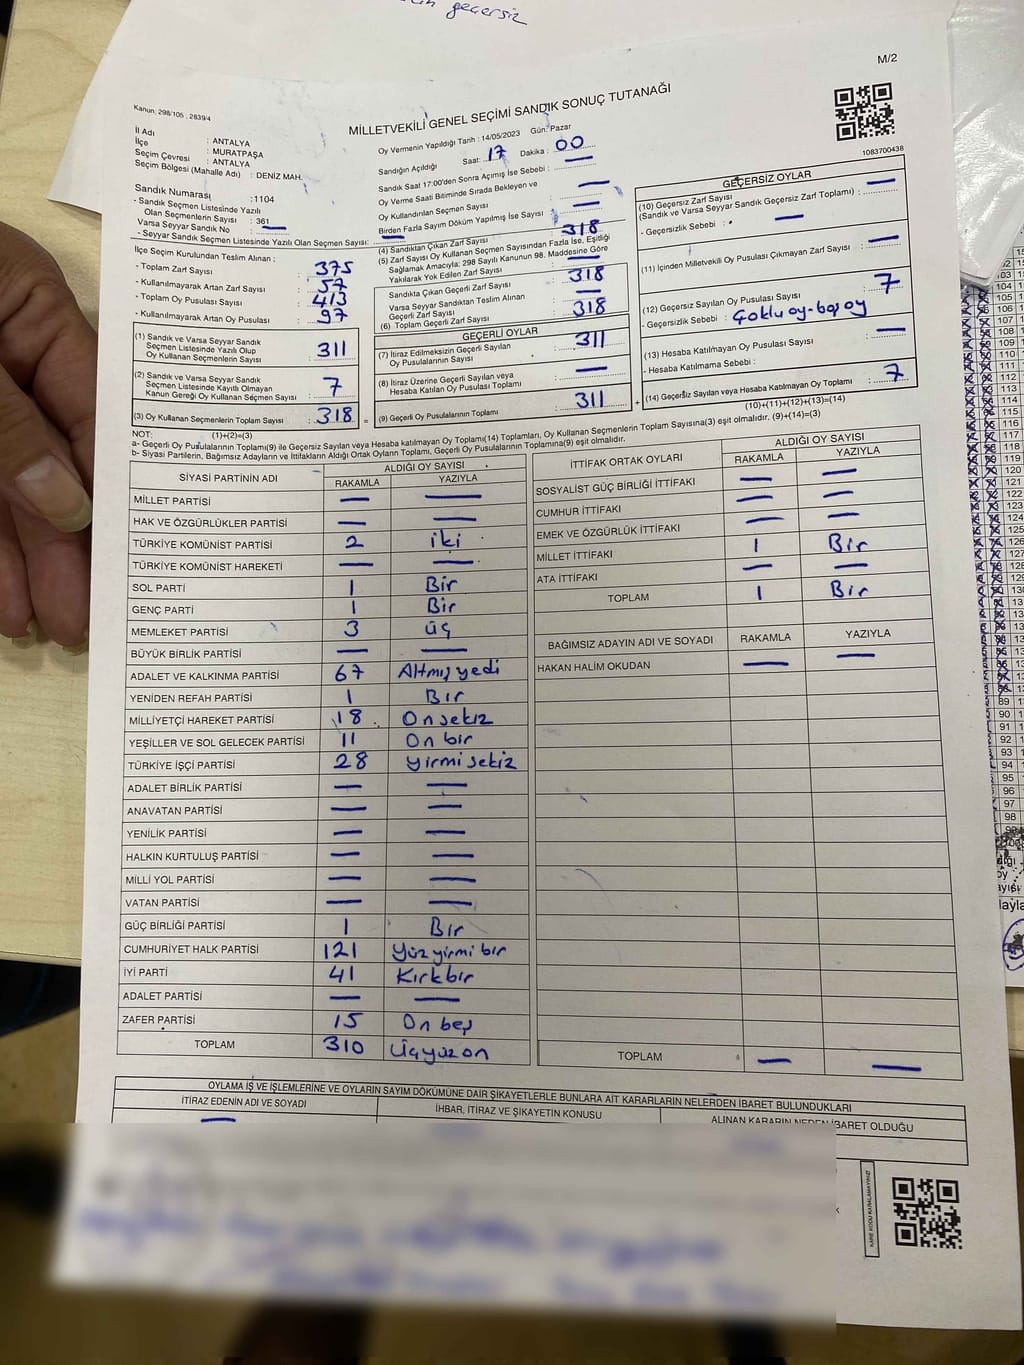 geçersiz
M/2
Kanun; 298/105 , 2839/4
MİLLETVEKİLİ GENEL SEÇİMİ SANDIK SONUÇ TUTANAĞI
1083700438
İl Adı : ANTALYA
İlçe : MURATPAŞA
Seçim Çevresi : ANTALYA
Seçim Bölgesi (Mahalle Adı) : DENİZ MAH.
Sandık Numarası :1104
- Sandık Seçmen Listesinde Yazılı
Olan Seçmenlerin Sayısı : 361
Varsa Seyyar Sandık No : —
- Seyyar Sandık Seçmen Listesinde Yazılı Olan Seçmen Sayısı: —
Oy Vermenin Yapıldığı Tarih : 14/05/2023 Gün: Pazar
Sandığın Açıldığı Saat: 17 Dakika : 00
Sandık Saat 17:00'den Sonra Açılmış İse Sebebi : —
Oy Verme Saati Bitiminde Sırada Bekleyen ve
Oy Kullandırılan Seçmen Sayısı —
Birden Fazla Sayım Döküm Yapılmış İse Sayısı —
İlçe Seçim Kurulundan Teslim Alınan :
- Toplam Zarf Sayısı : 375
- Kullanılmayarak Artan Zarf Sayısı : 57
- Toplam Oy Pusulası Sayısı : 413
- Kullanılmayarak Artan Oy Pusulası : 97
(1) Sandık ve Varsa Seyyar Sandık
Seçmen Listesinde Yazılı Olup
Oy Kullanan Seçmenlerin Sayısı : 311
(2) Sandık ve Varsa Seyyar Sandık
Seçmen Listesinde Kayıtlı Olmayan
Kanun Gereği Oy Kullanan Seçmen Sayısı : 7
(3) Oy Kullanan Seçmenlerin Toplam Sayısı : 318
(1)+(2)=(3)
(4) Sandıktan Çıkan Zarf Sayısı : 318
(5) Zarf Sayısı Oy Kullanan Seçmen Sayısından Fazla İse, Eşitliği
Sağlamak Amacıyla; 298 Sayılı Kanunun 98. Maddesine Göre
Yakılarak Yok Edilen Zarf Sayısı : —
Sandıkta Çıkan Geçerli Zarf Sayısı : 318
Varsa Seyyar Sandıktan Teslim Alınan
Geçerli Zarf Sayısı : —
(6) Toplam Geçerli Zarf Sayısı : 318
GEÇERLİ OYLAR
(7) İtiraz Edilmeksizin Geçerli Sayılan
Oy Pusulalarının Sayısı : 311
(8) İtiraz Üzerine Geçerli Sayılan veya
Hesaba Katılan Oy Pusulası Toplamı : —
= (9) Geçerli Oy Pusulalarının Toplamı : 311 +
GEÇERSİZ OYLAR
(10) Geçersiz Zarf Sayısı
(Sandık ve Varsa Seyyar Sandık Geçersiz Zarf Toplamı) : —
- Geçersizlik Sebebi : —
(11) İçinden Milletvekili Oy Pusulası Çıkmayan Zarf Sayısı : —
(12) Geçersiz Sayılan Oy Pusulası Sayısı : 7
- Geçersizlik Sebebi : Çoklu oy-boş oy
(13) Hesaba Katılmayan Oy Pusulası Sayısı : —
- Hesaba Katılmama Sebebi :
(14) Geçersiz Sayılan veya Hesaba Katılmayan Oy Toplamı : 7
(10)+(11)+(12)+(13)=(14)
NOT:
a- Geçerli Oy Pusulalarının Toplamı(9) ile Geçersiz Sayılan veya Hesaba katılmayan Oy Toplamı(14) Toplamları, Oy Kullanan Seçmenlerin Toplam Sayısına(3) eşit olmalıdır. (9)+(14)=(3)
b- Siyasi Partilerin, Bağımsız Adayların ve İttifakların Aldığı Ortak Oyların Toplamı, Geçerli Oy Pusulalarının Toplamına(9) eşit olmalıdır.
SİYASİ PARTİNİN ADI ALDIĞI OY SAYISI
RAKAMLA YAZIYLA
MİLLET PARTİSİ — —
HAK VE ÖZGÜRLÜKLER PARTİSİ — —
TÜRKİYE KOMÜNİST PARTİSİ 2 iki
TÜRKİYE KOMÜNİST HAREKETİ — —
SOL PARTİ 1 Bir
GENÇ PARTİ 1 Bir
MEMLEKET PARTİSİ 3 üç
BÜYÜK BİRLİK PARTİSİ — —
ADALET VE KALKINMA PARTİSİ 67 Altmışyedi
YENİDEN REFAH PARTİSİ 1 Bir
MİLLİYETÇİ HAREKET PARTİSİ 18 Onsekiz
YEŞİLLER VE SOL GELECEK PARTİSİ 11 On bir
TÜRKİYE İŞÇİ PARTİSİ 28 yirmi sekiz
ADALET BİRLİK PARTİSİ — —
ANAVATAN PARTİSİ — —
YENİLİK PARTİSİ — —
HALKIN KURTULUŞ PARTİSİ — —
MİLLİ YOL PARTİSİ — —
VATAN PARTİSİ — —
GÜÇ BİRLİĞİ PARTİSİ 1 Bir
CUMHURİYET HALK PARTİSİ 121 Yüz yirmi bir
İYİ PARTİ 41 Kırkbir
ADALET PARTİSİ — —
ZAFER PARTİSİ 15 On beş
TOPLAM 310 Üçyüz on
İTTİFAK ORTAK OYLARI ALDIĞI OY SAYISI
RAKAMLA YAZIYLA
SOSYALİST GÜÇ BİRLİĞİ İTTİFAKI — —
CUMHUR İTTİFAKI — —
EMEK VE ÖZGÜRLÜK İTTİFAKI — —
MİLLET İTTİFAKI 1 Bir
ATA İTTİFAKI — —
TOPLAM 1 Bir
BAĞIMSIZ ADAYIN ADI VE SOYADI RAKAMLA YAZIYLA
HAKAN HALİM OKUDAN — —
TOPLAM — —
OYLAMA İŞ VE İŞLEMLERİNE VE OYLARIN SAYIM DÖKÜMÜNE DAİR ŞİKAYETLERLE BUNLARA AİT KARARLARIN NELERDEN İBARET BULUNDUKLARI
İTİRAZ EDENİN ADI VE SOYADI İHBAR, İTİRAZ VE ŞİKAYETİN KONUSU ALINAN KARARIN NEDEN İBARET OLDUĞU
—
KARE KODU KARALAMAYINIZ!